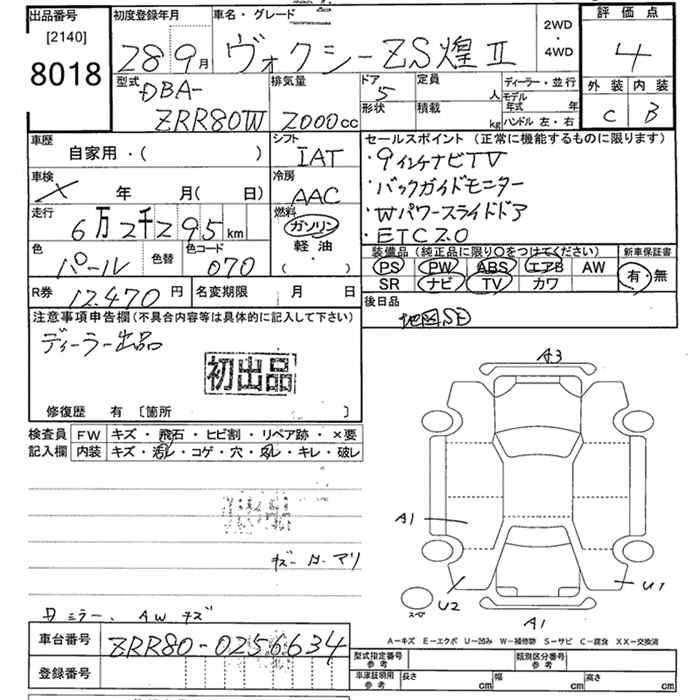 出品番号
[2140]
8018
初度登録年月
28 9月
車名・グレード
ヴォクシー ZS煌Ⅱ
2WD
・
4WD
評価点
4
外装 内装
C B
型式
DBA-
ZRR80W
排気量
2000cc
ドア
5
形状
定員
人
積載
kg
ディーラー・並行
モデル
年式 年
ハンドル 左・右
車歴
自家用・( )
シフト
IAT
車検
X 年 月( 日)
冷房
AAC
走行
6万2千295km
燃料
ガソリン
軽油
・
( )
色
パール
色替
色コード
070
R券 12,470円
名変期限 月 日
セールスポイント (正常に機能するものに限ります)
・9インチナビTV
・バックガイドモニター
・Wパワースライドドア
・ETC2.0
装備品 (純正品に限り○をつけてください)
PS PW ABS エアB AW
SR ナビ TV カワ
新車保証書
有・無
後日品
地図SD
注意事項申告欄(不具合内容等は具体的に記入して下さい)
ディーラー出品
初出品
修復歴 有 [箇所 ]
検査員
記入欄
FW キズ・飛石・ヒビ割・リペア跡・×要
内装 キズ・汚レ・コゲ・穴・スレ・キレ・破レ
ミラー、AWキズ
A3
A1
U2
U1
スペア
A1
A-キズ E-エクボ U-凹み W-補修跡 S-サビ C-腐食 XX-交換済
車台番号 ZRR80-0256634
登録番号
型式指定番号
参考
類別区分番号
参考
車庫証明用
参考
長さ cm 幅 cm 高さ cm